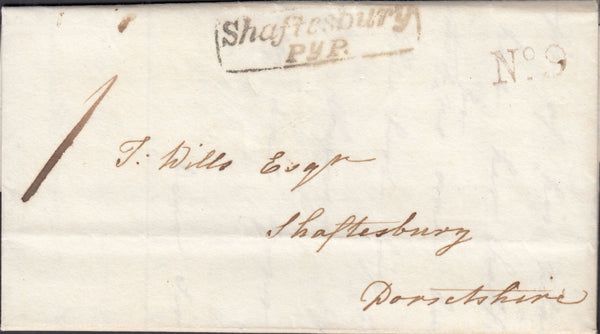 Shaftesbury
PyP.
No. 9
1
T. Wills Esqr
Shaftesbury
Dorsetshire